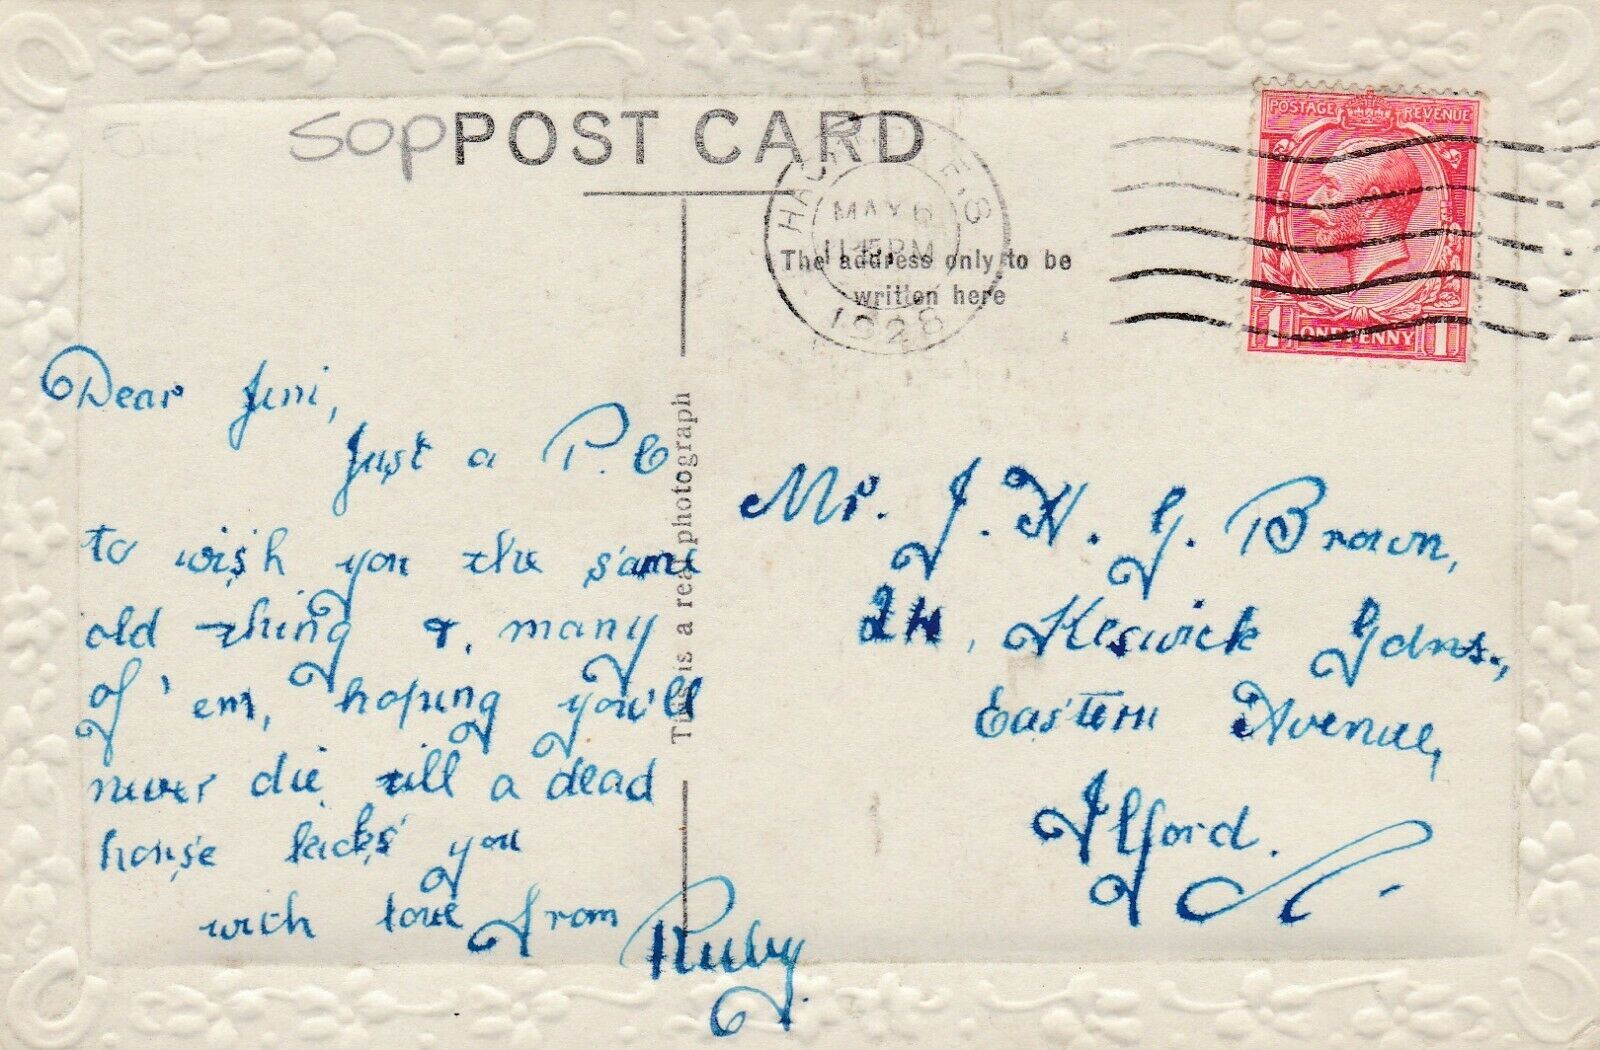 50P
POST CARD
HACKNEY E.8
MAY 6
11 15 PM
1928
The address only to be
written here
POSTAGE REVENUE
1 ONE PENNY 1
This is a real photograph
Dear Jim,
Just a P.C
to wish you the same
old thing & many
of 'em, hoping you'll
never die till a dead
horse kicks you
with love from
Ruby.
Mr. J. H. G. Brown,
24, Keswick Gdns.,
Eastern Avenue,
Ilford.